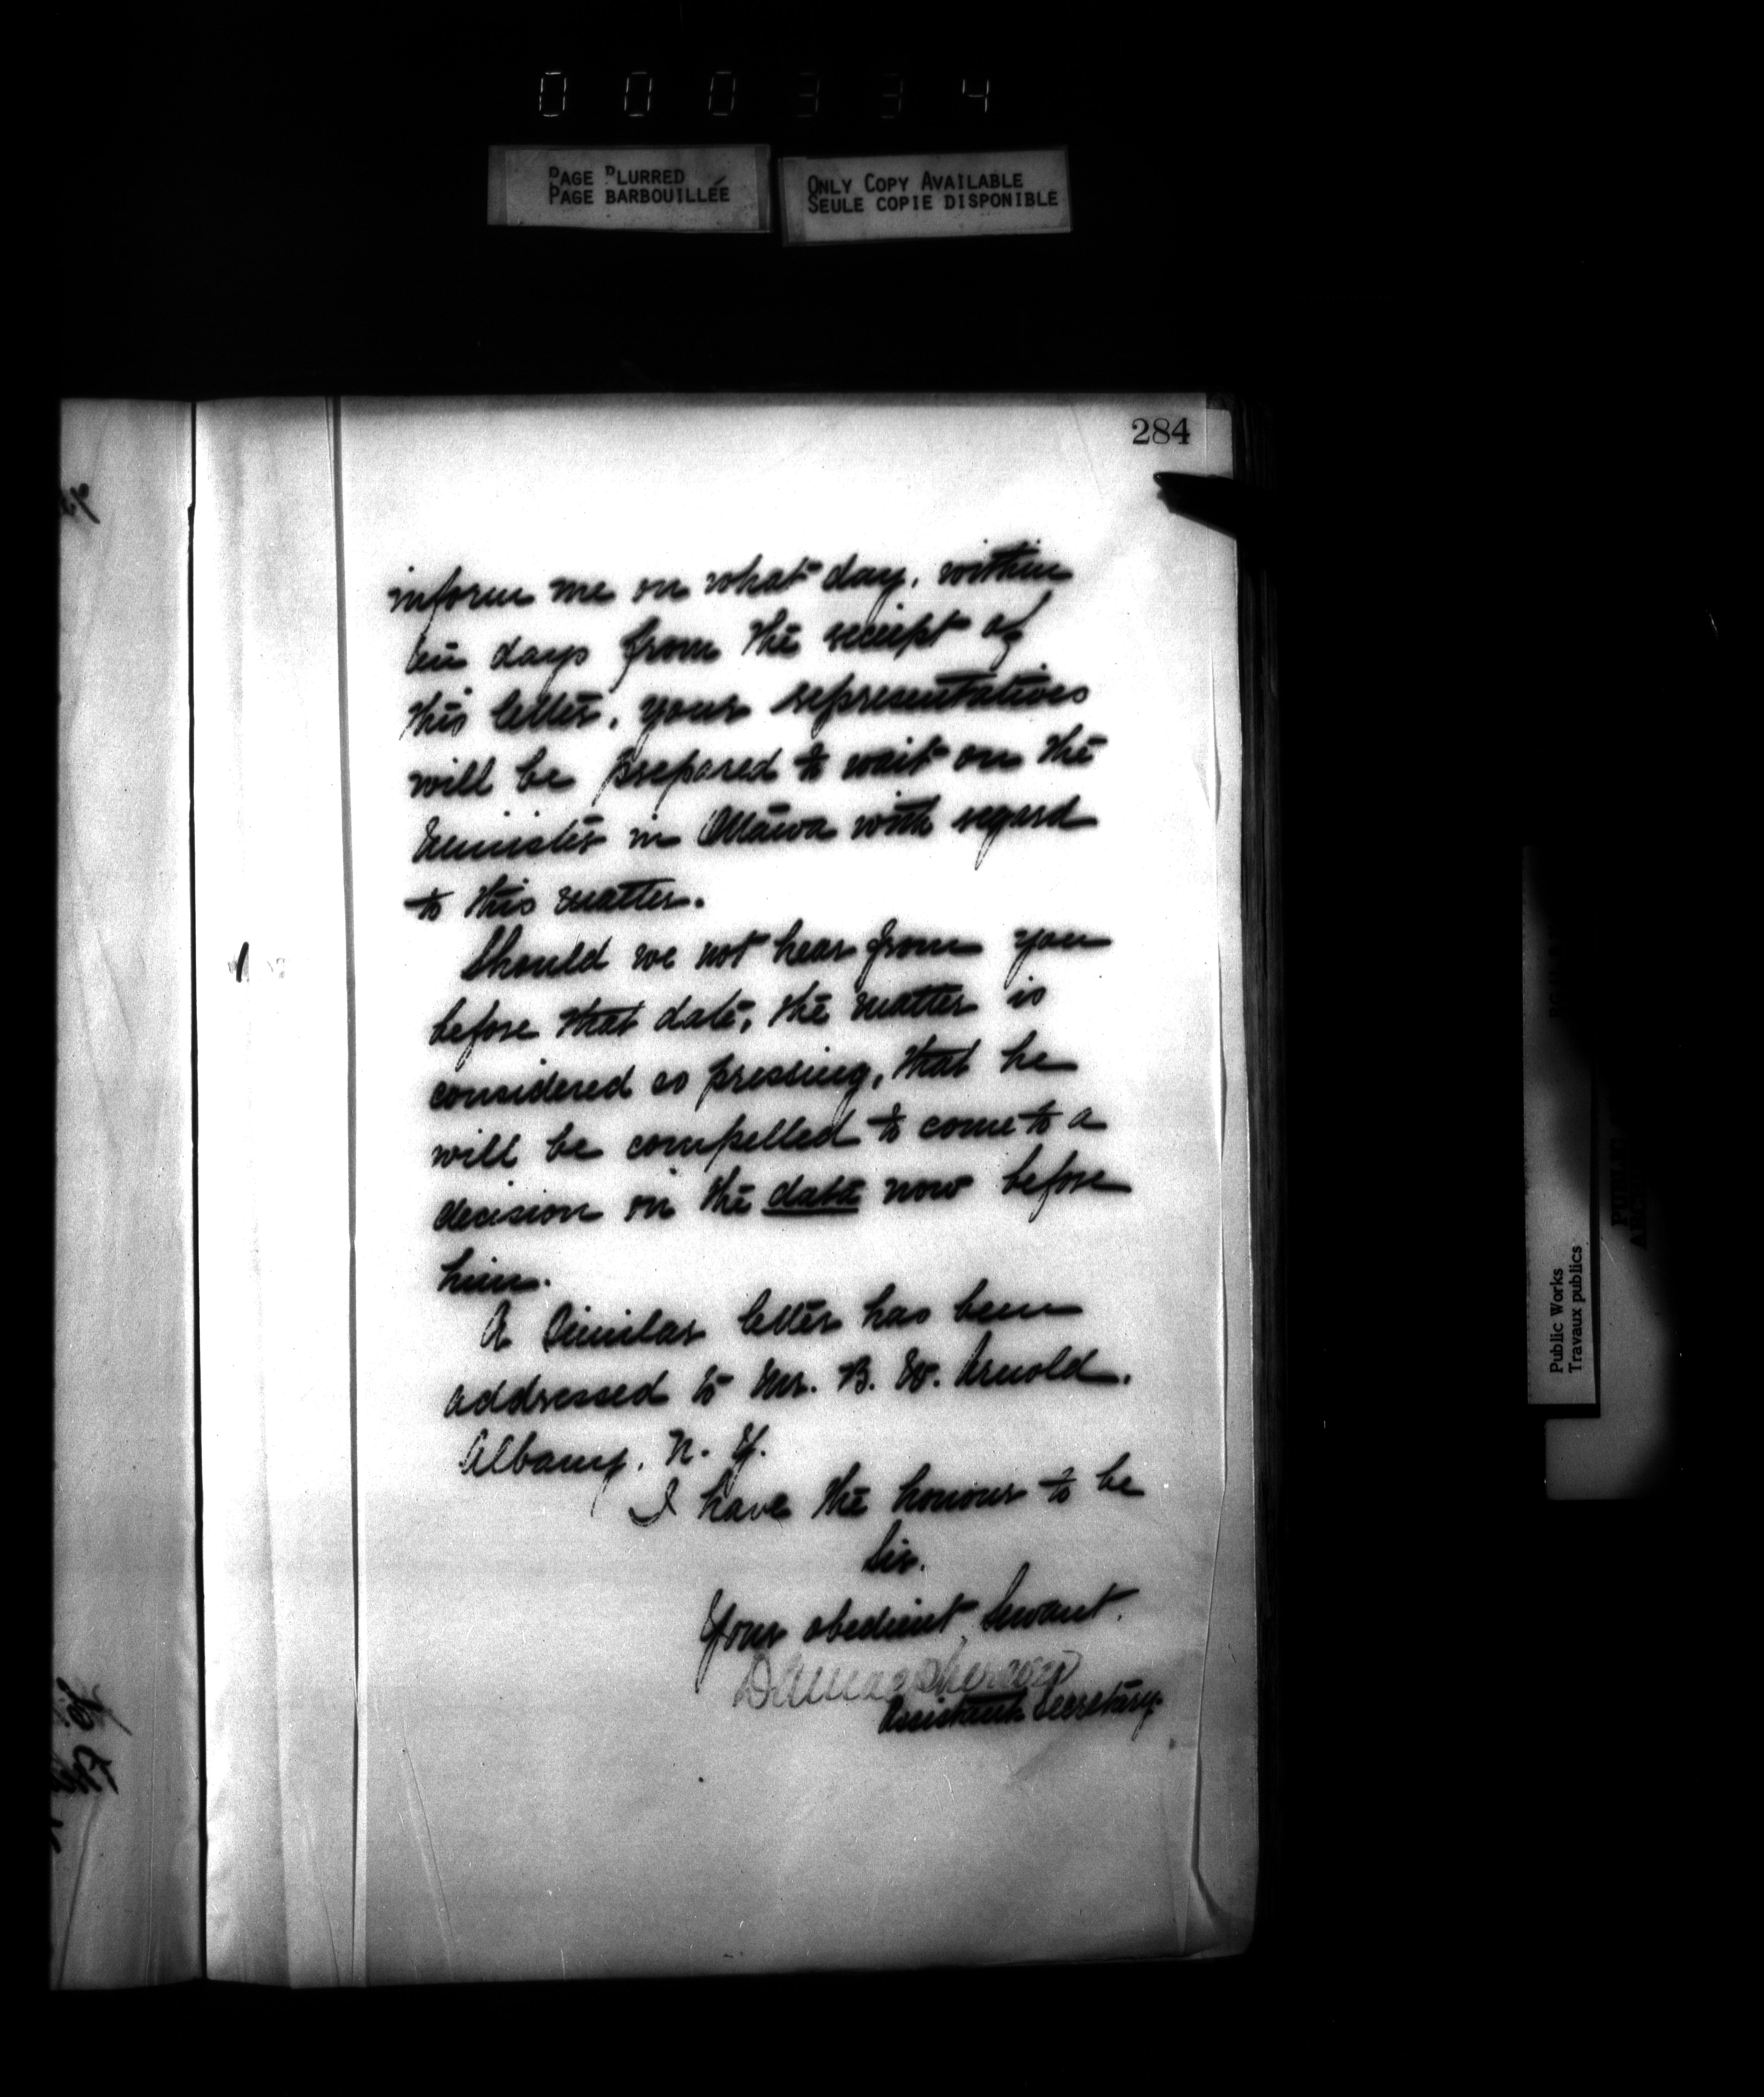 000334
PAGE BLURRED
PAGE BARBOUILLÉE
ONLY COPY AVAILABLE
SEULE COPIE DISPONIBLE
284
inform me on what day, within
ten days from the receipt of
this letter, your representatives
will be prepared to wait on the
Minister in Ottawa with regard
to this matter.
Should we not hear from you
before that date, the matter is
considered so pressing, that he
will be compelled to come to a
decision on the data now before
him.
A Similar letter has been
addressed to Mr. B. W. Arnold,
Albany, N. Y.
I have the honour to be
Sir,
Your obedient Servant,
Assistant Secretary.
Public Works
Travaux publics